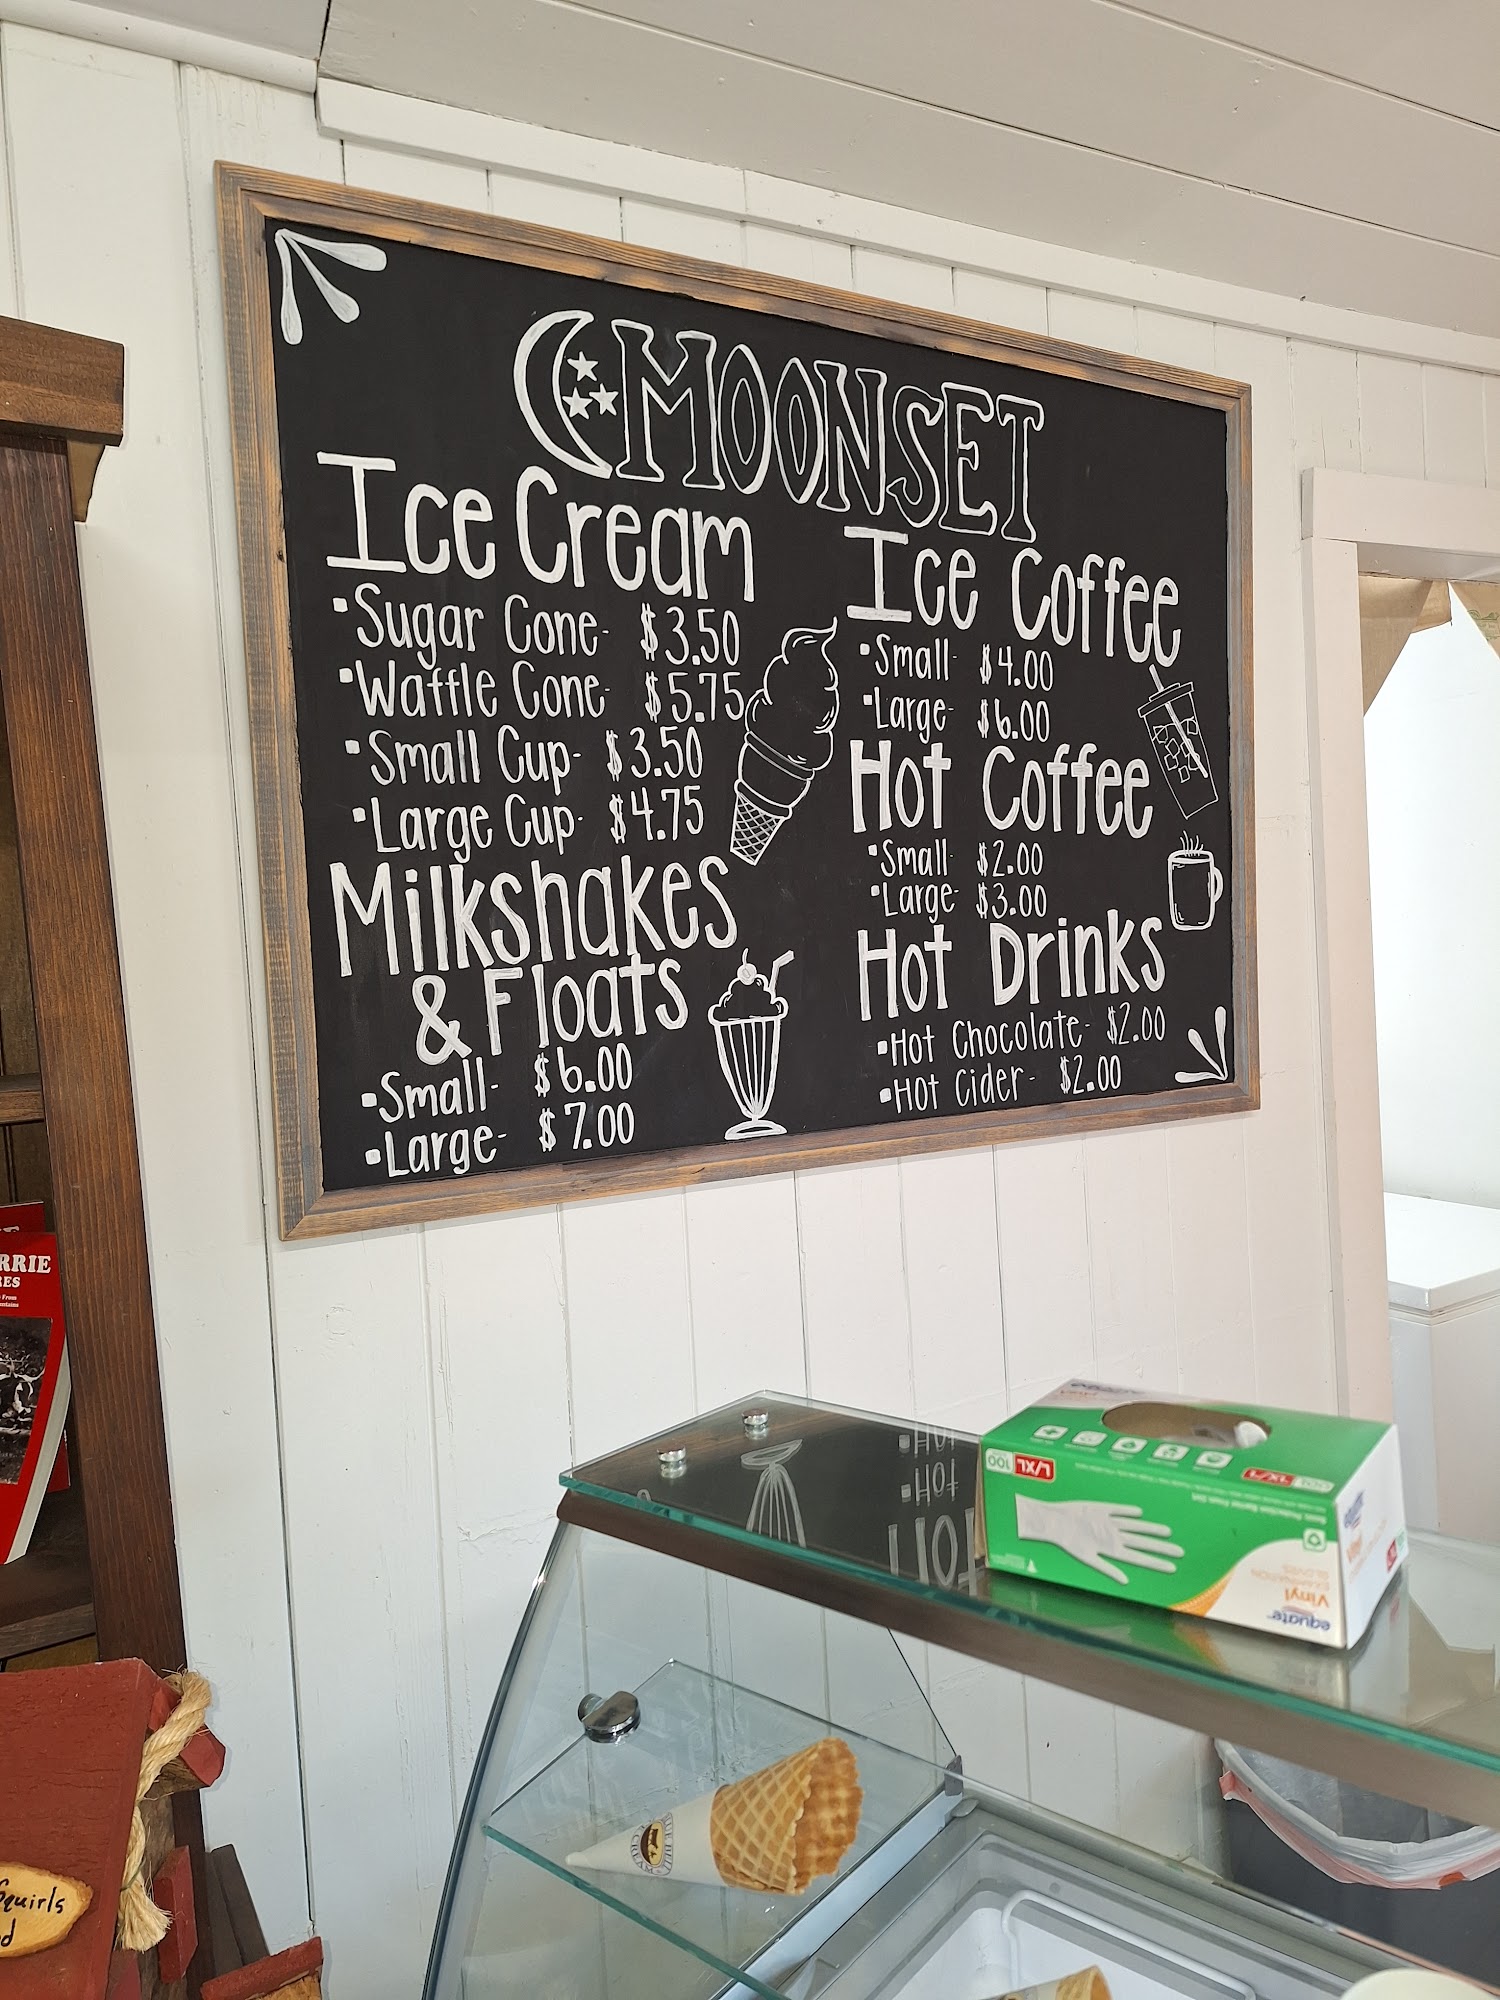 MOONSET
Ice Cream
Sugar Cone- $3.50
Waffle Cone- $5.75
Small Cup- $3.50
Large Cup- $4.75
Milkshakes
& Floats
Small- $6.00
Large- $7.00
Ice Coffee
Small- $4.00
Large- $6.00
Hot Coffee
Small- $2.00
Large- $3.00
Hot Drinks
Hot Chocolate- $2.00
Hot Cider- $2.00
L/XL
100
equate
Vinyl
EXAMINATION
GLOVES
ICE CREAM